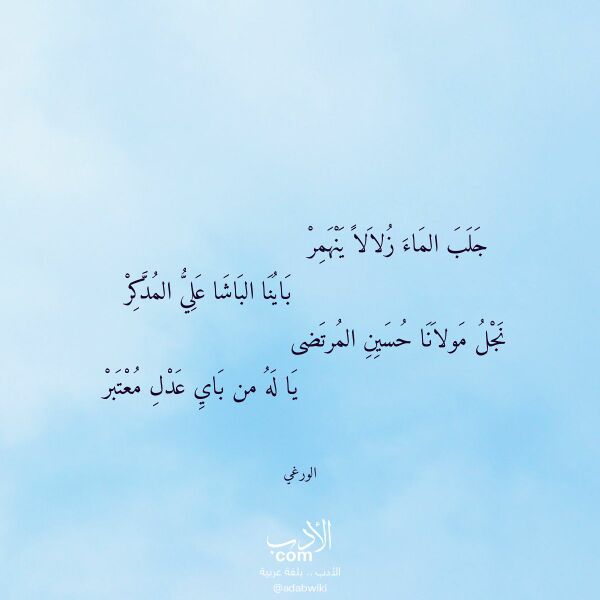 جَلَبَ المَاءَ زُلاَلاً يَنْهَمِرْ
بَايُنَا البَاشَا عَلِيُّ المُدَّكِرْ
نَجْلُ مَولاَنَا حُسَيِنِ المُرتَضى
يَا لَهُ من بَايِ عَدْلِ مُعْتَبَرْ
الورغي
الأدب
com
الأدب .. بلغة عربية
@adabwiki